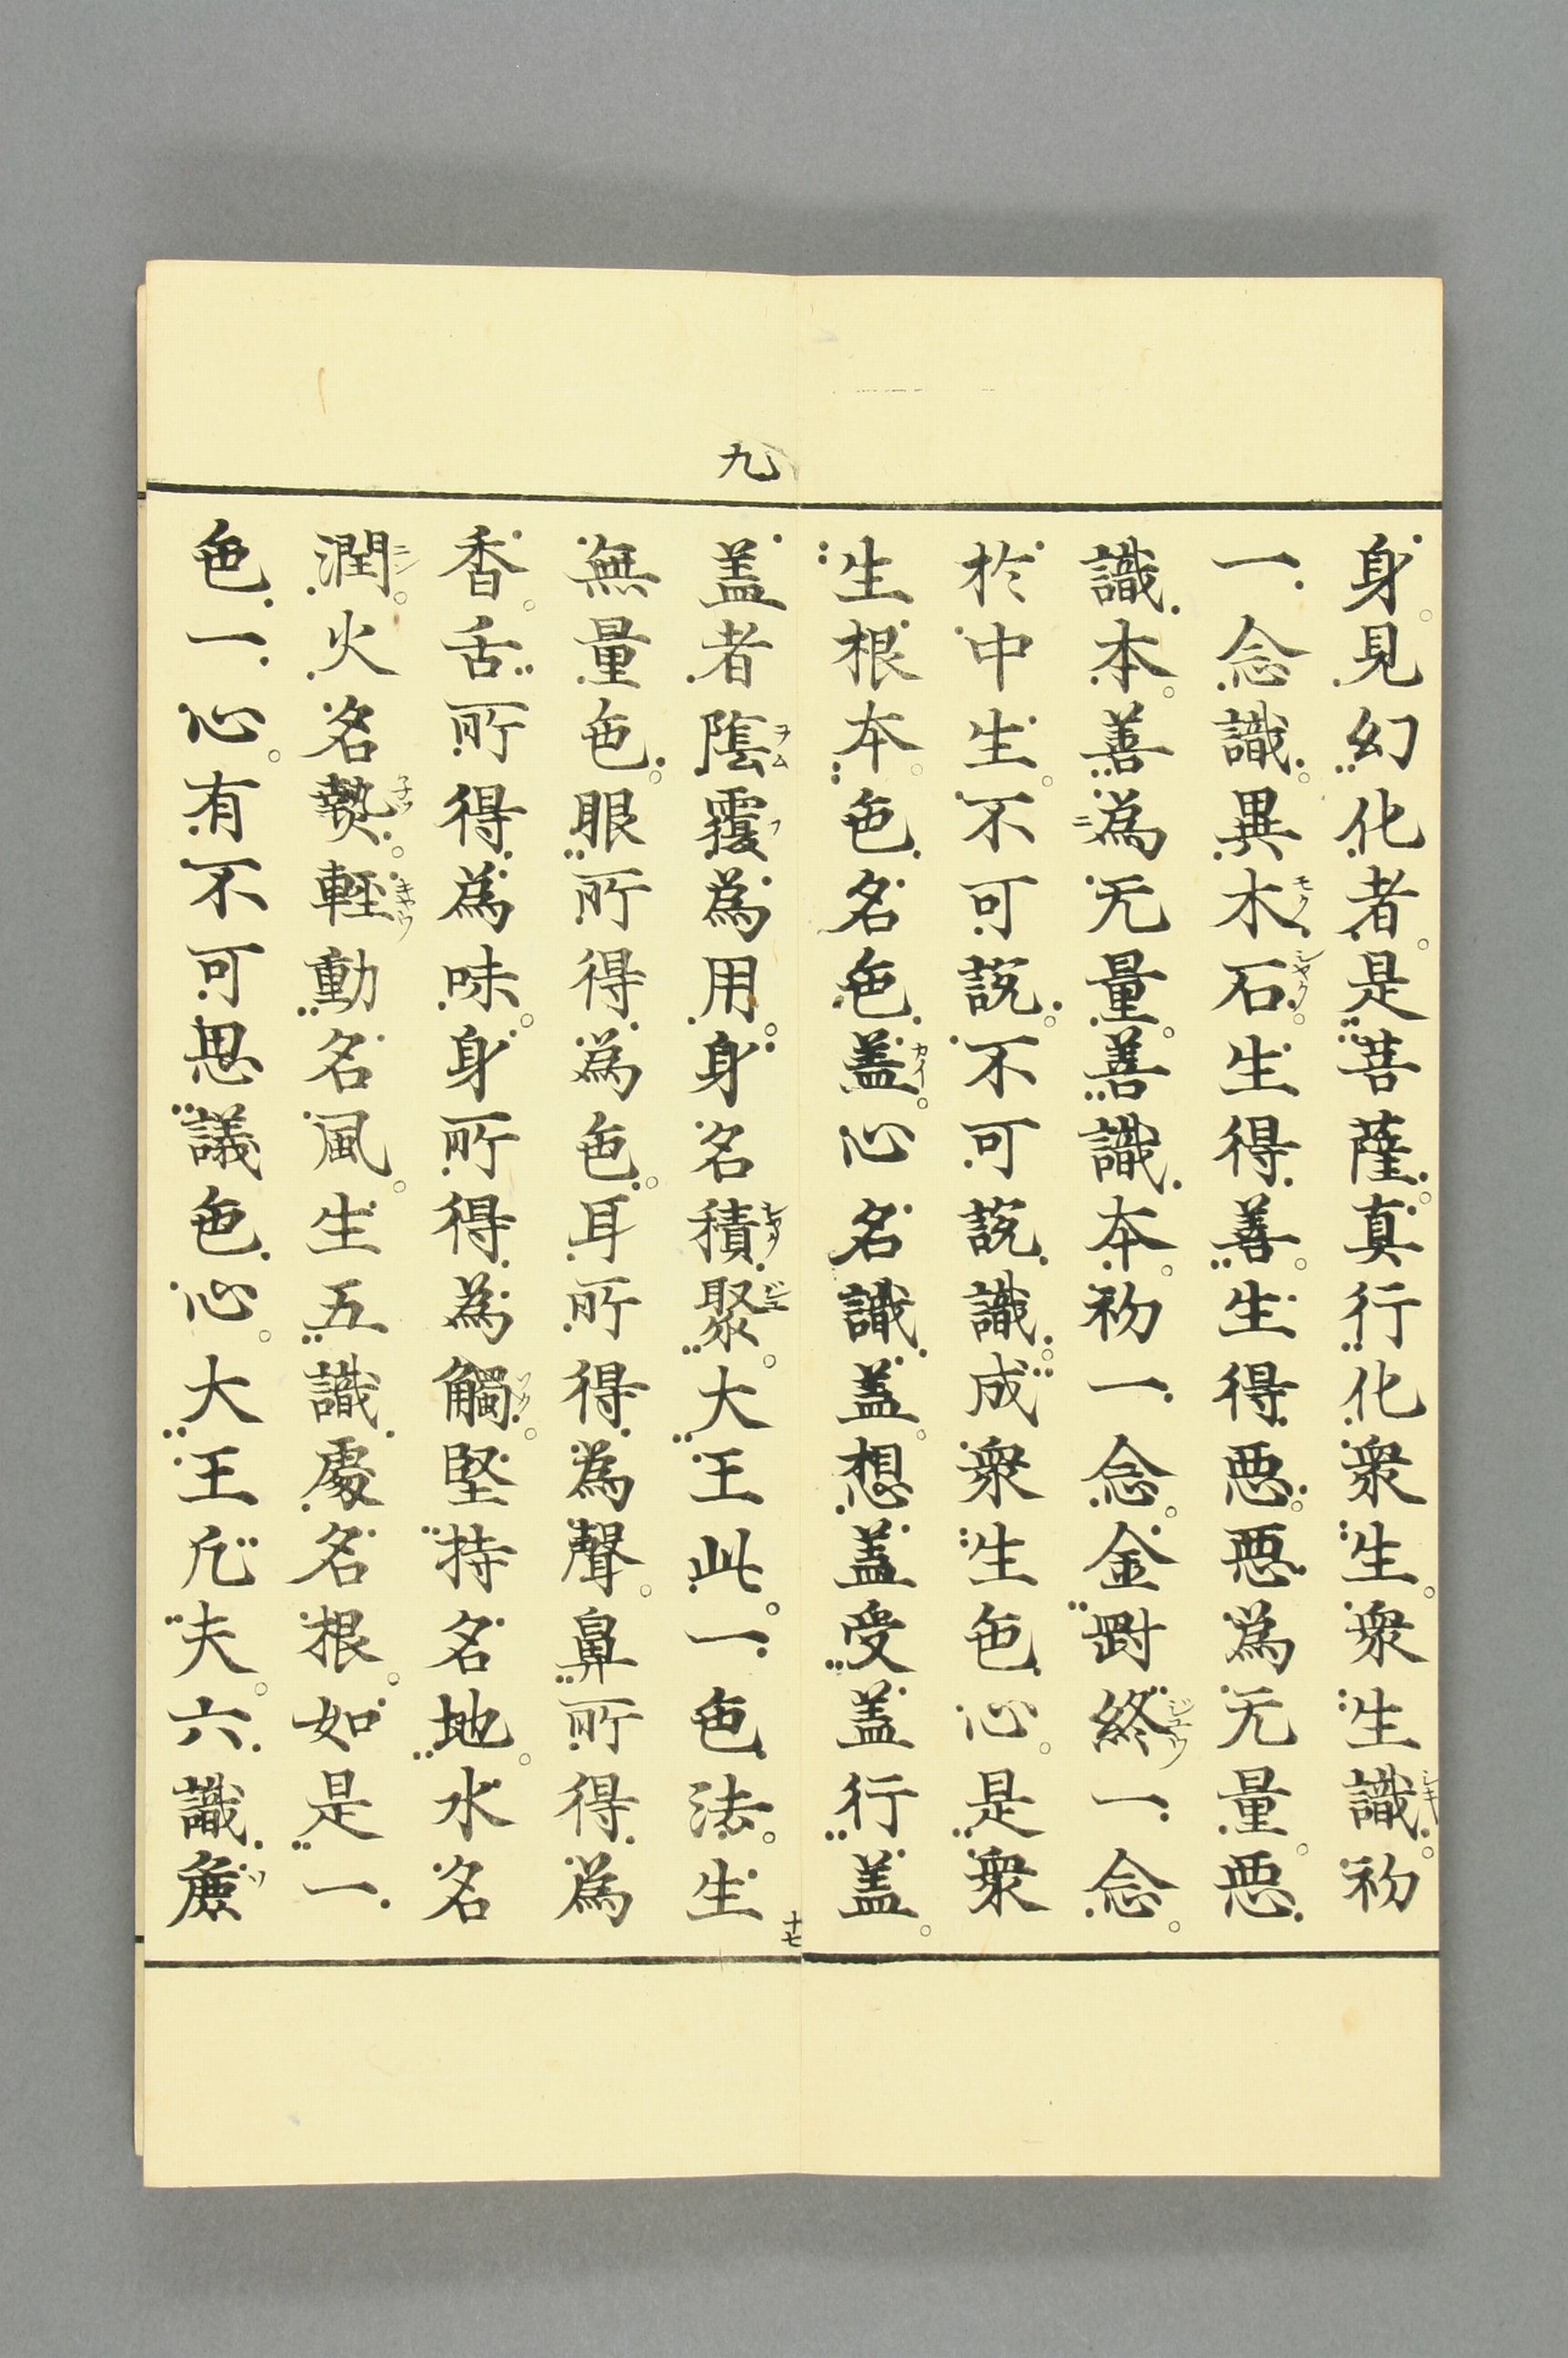 身見幻化者是菩薩真行化衆生衆生識初
一念識異木石生得善生得惡惡為无量惡
識本善為无量善識本初一念金剛終一念
於中生不可說不可說識成衆生色心是衆
生根本色名色盖心名識盖想盖受盖行盖
九
盖者蔭覆為用身名積聚大王此一色法生
十七
無量色眼所得為色耳所得為聲鼻所得為
香舌所得為味身所得為觸堅持名地水名
潤火名熱輕動名風生五識處名根如是一
色一心有不可思議色心大王凡夫六識麁